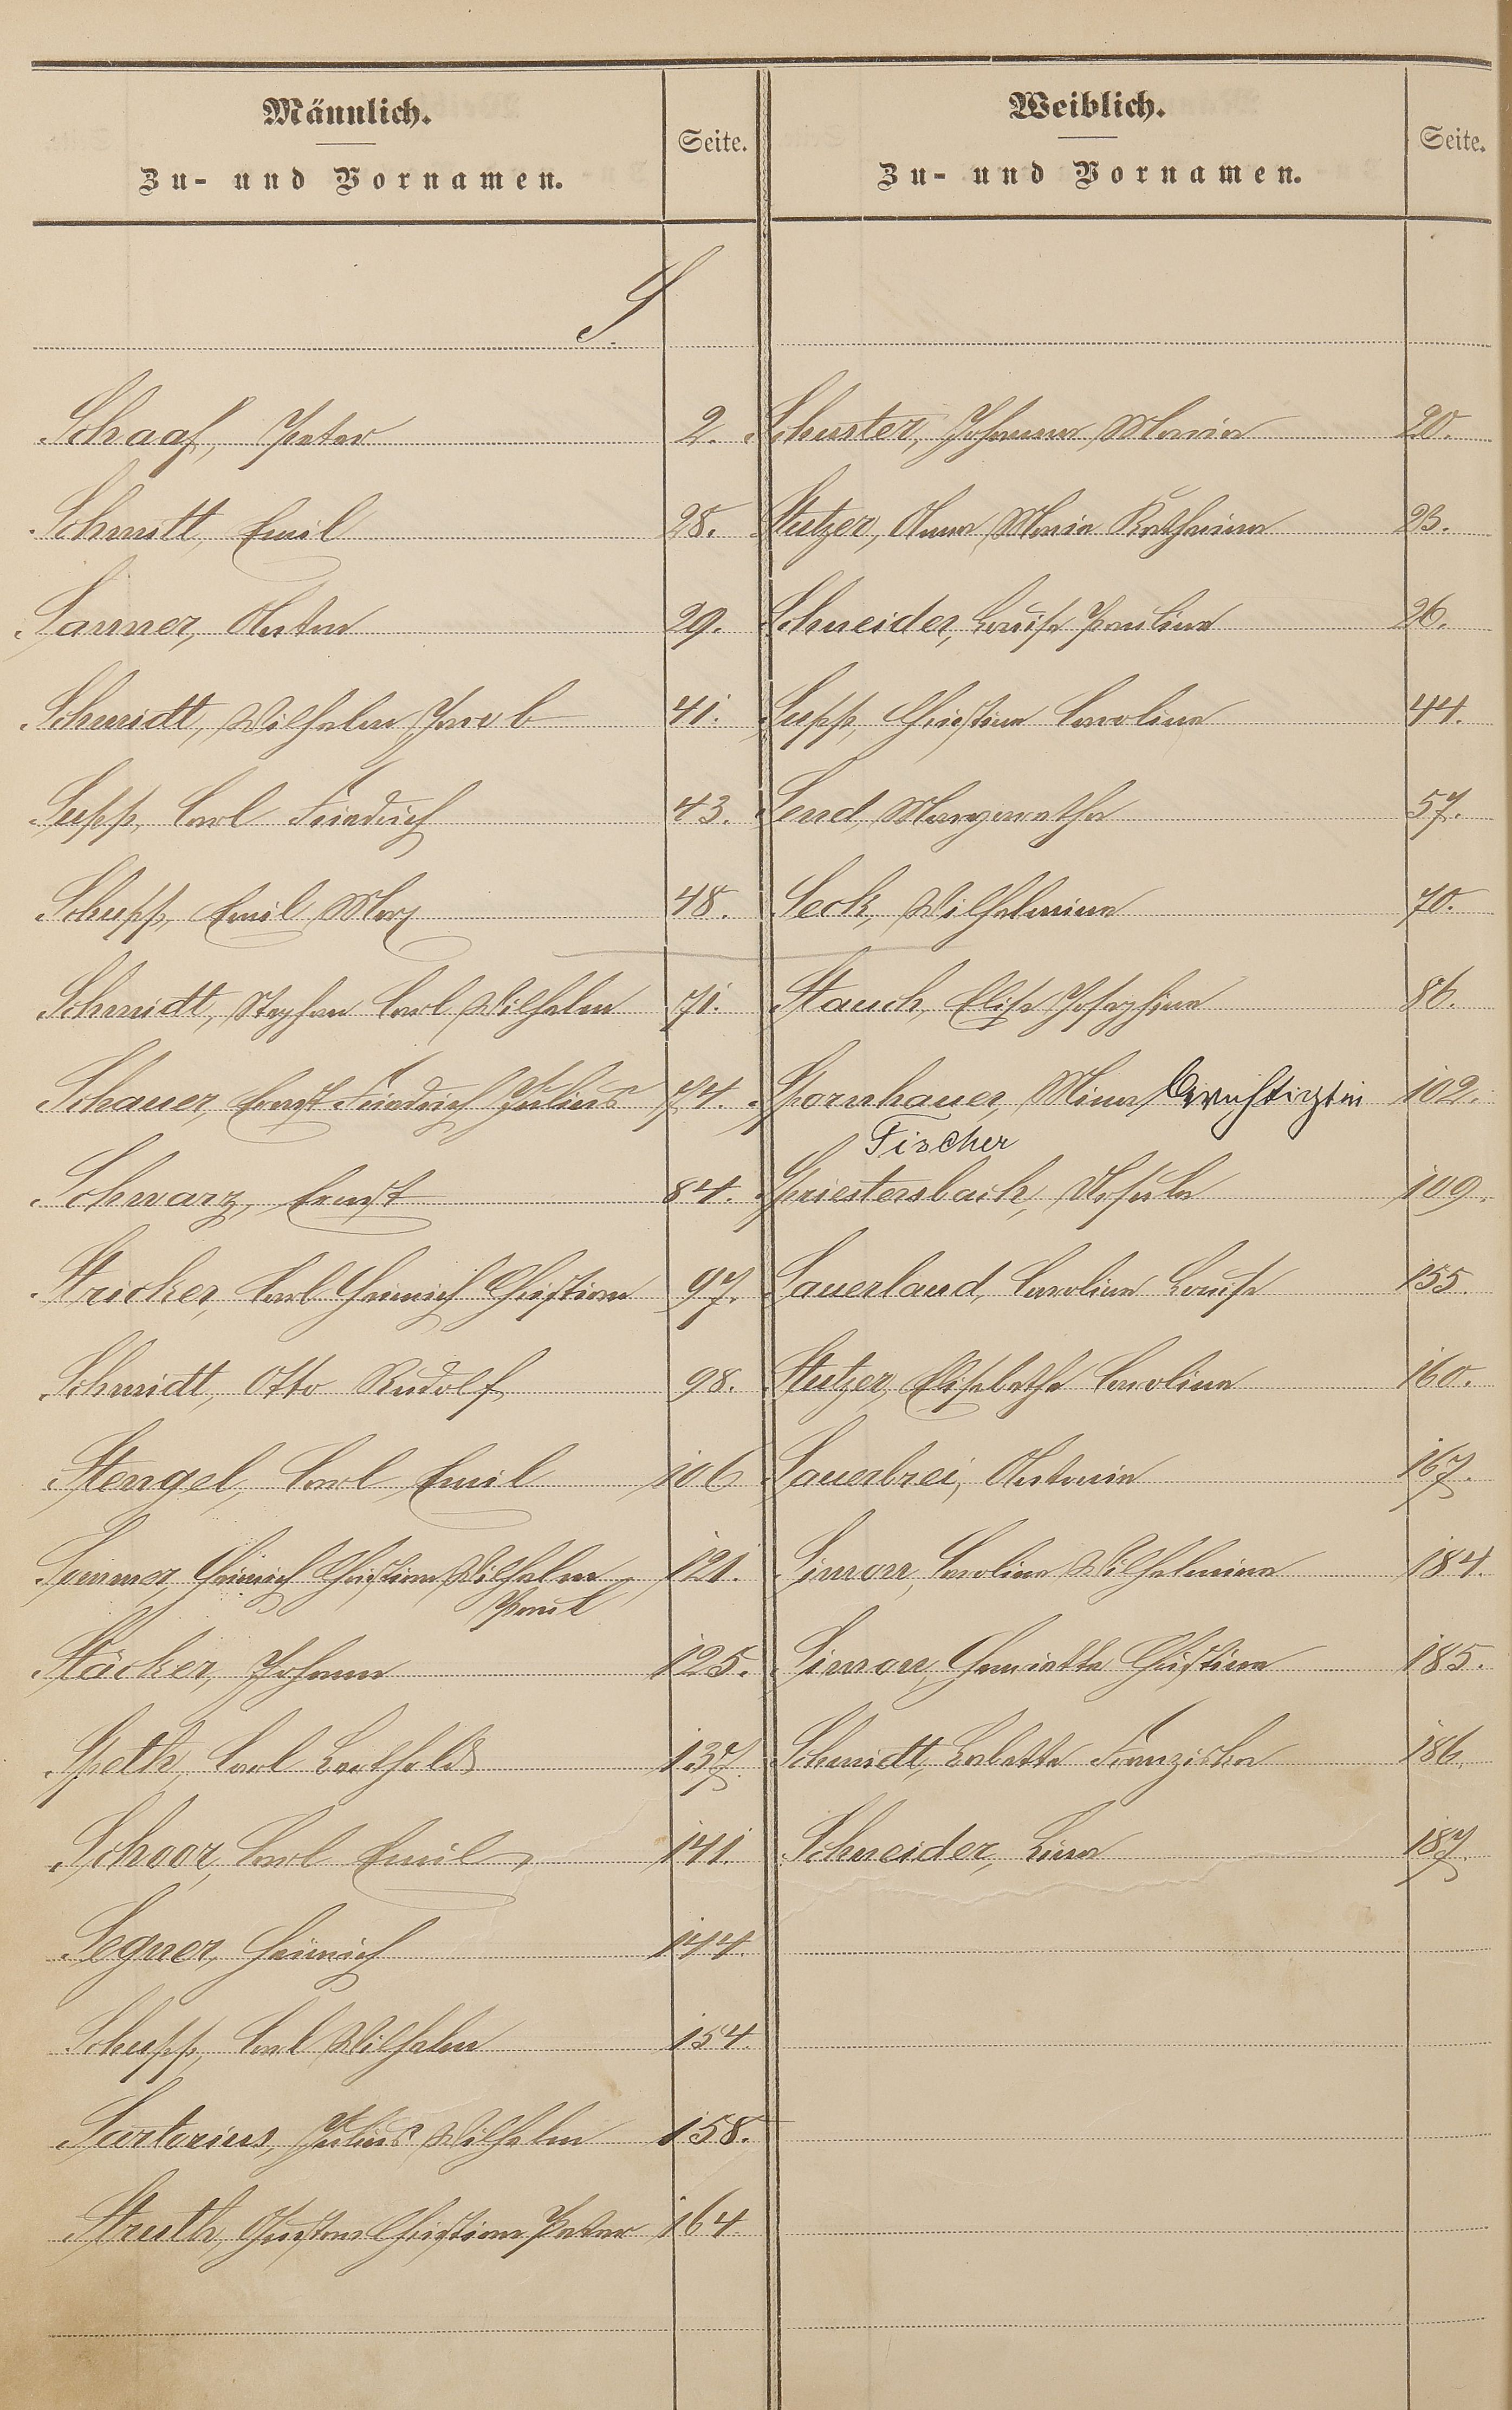 Männlich.
Zu- und Vornamen.
Seite.
Weiblich.
Zu- und Vornamen.
Seite.
S.
Schaaf, Peter 2.
Schmitt, Emil 28.
Sanner, Anton 29.
Schmidt, Wilhelm Jacob 41.
Supp, Carl Friedrich 43.
Schupp, Emil Max 48.
Schmidt, Stephan Carl Wilhelm 71.
Schauer, Ernst Friedrich Julius 74.
Schwarz, Ernst 84.
Stricker, Carl Heinrich Christian 97.
Schmidt, Otto Rudolf 98.
Stengel, Carl Emil 106
Sommer, Heinrich Christian Wilhelm 121.
Paul
Stäcker, Johann 125.
Speth, Carl Berthold 137.
Schoor, Carl Emil 141.
Segner, Heinrich 144.
Schupp, Carl Wilhelm 154.
Sartorius, Julius Wilhelm 158.
Struth, Gustav Christian Peter 164
Schuster, Johanna Maria 20.
Stutzer, Anna Maria Katharina 23.
Schneider, Louise Pauline 26.
Supp, Christine Caroline 44.
Send, Margaretha 57.
Seck, Wilhelmine 70.
Stauch, Elise Josephine 86.
Spornhauer, Mina berichtigt in 102.
Fischer
Spriestersbach, Ursula 109.
Sauerland, Caroline Louise 155.
Stutzer, Elisabethe Caroline 160.
Sauerbrei, Antonie 167.
Simon, Caroline Wilhelmine 184.
Simon, Henriette Christine 185.
Schmidt, Babette Franziska 186.
Schneider, Lina 187.